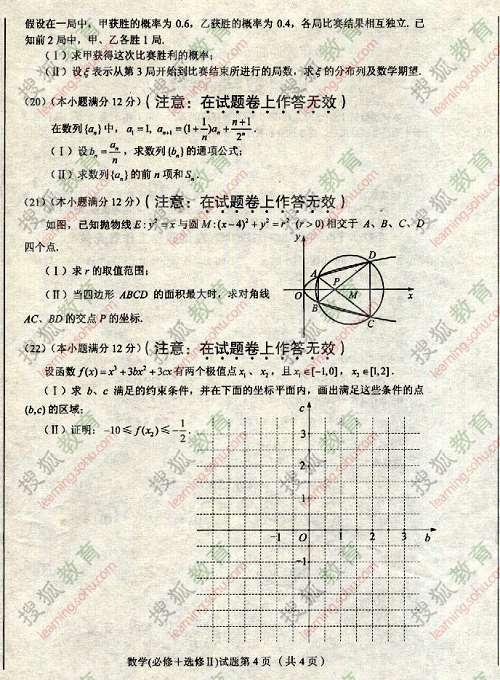 假设在一局中，甲获胜的概率为 0.6，乙获胜的概率为 0.4，各局比赛结果相互独立. 已
知前 2 局中，甲、乙各胜 1 局.
(Ⅰ) 求甲获得这次比赛胜利的概率；
(Ⅱ) 设 ξ 表示从第 3 局开始到比赛结束所进行的局数，求 ξ 的分布列及数学期望.
(20)（本小题满分 12 分）（注意：在试题卷上作答无效）
在数列{aₙ}中，a₁=1, aₙ₊₁=(1+1/n)aₙ+(n+1)/2ⁿ.
(Ⅰ) 设 bₙ=aₙ/n，求数列{bₙ}的通项公式；
(Ⅱ) 求数列{aₙ}的前 n 项和 Sₙ.
(21)（本小题满分 12 分）（注意：在试题卷上作答无效）
如图，已知抛物线 E:y²=x 与圆 M:(x−4)²+y²=r² (r>0) 相交于 A、B、C、D
四个点.
(Ⅰ) 求 r 的取值范围；
(Ⅱ) 当四边形 ABCD 的面积最大时，求对角线
AC、BD 的交点 P 的坐标.
y
D
A
P
O
M
x
B
C
(22)（本小题满分 12 分）（注意：在试题卷上作答无效）
设函数 f(x)=x³+3bx²+3cx 有两个极值点 x₁、x₂，且 x₁∈[−1,0]，x₂∈[1,2].
(Ⅰ) 求 b、c 满足的约束条件，并在下面的坐标平面内，画出满足这些条件的点
(b,c) 的区域；
(Ⅱ) 证明：−10≤f(x₂)≤−1/2.
c
1
−1 O 1 2 3 b
−1
数学(必修＋选修Ⅱ)试题第 4 页（共 4 页）
搜狐教育
learning.sohu.com